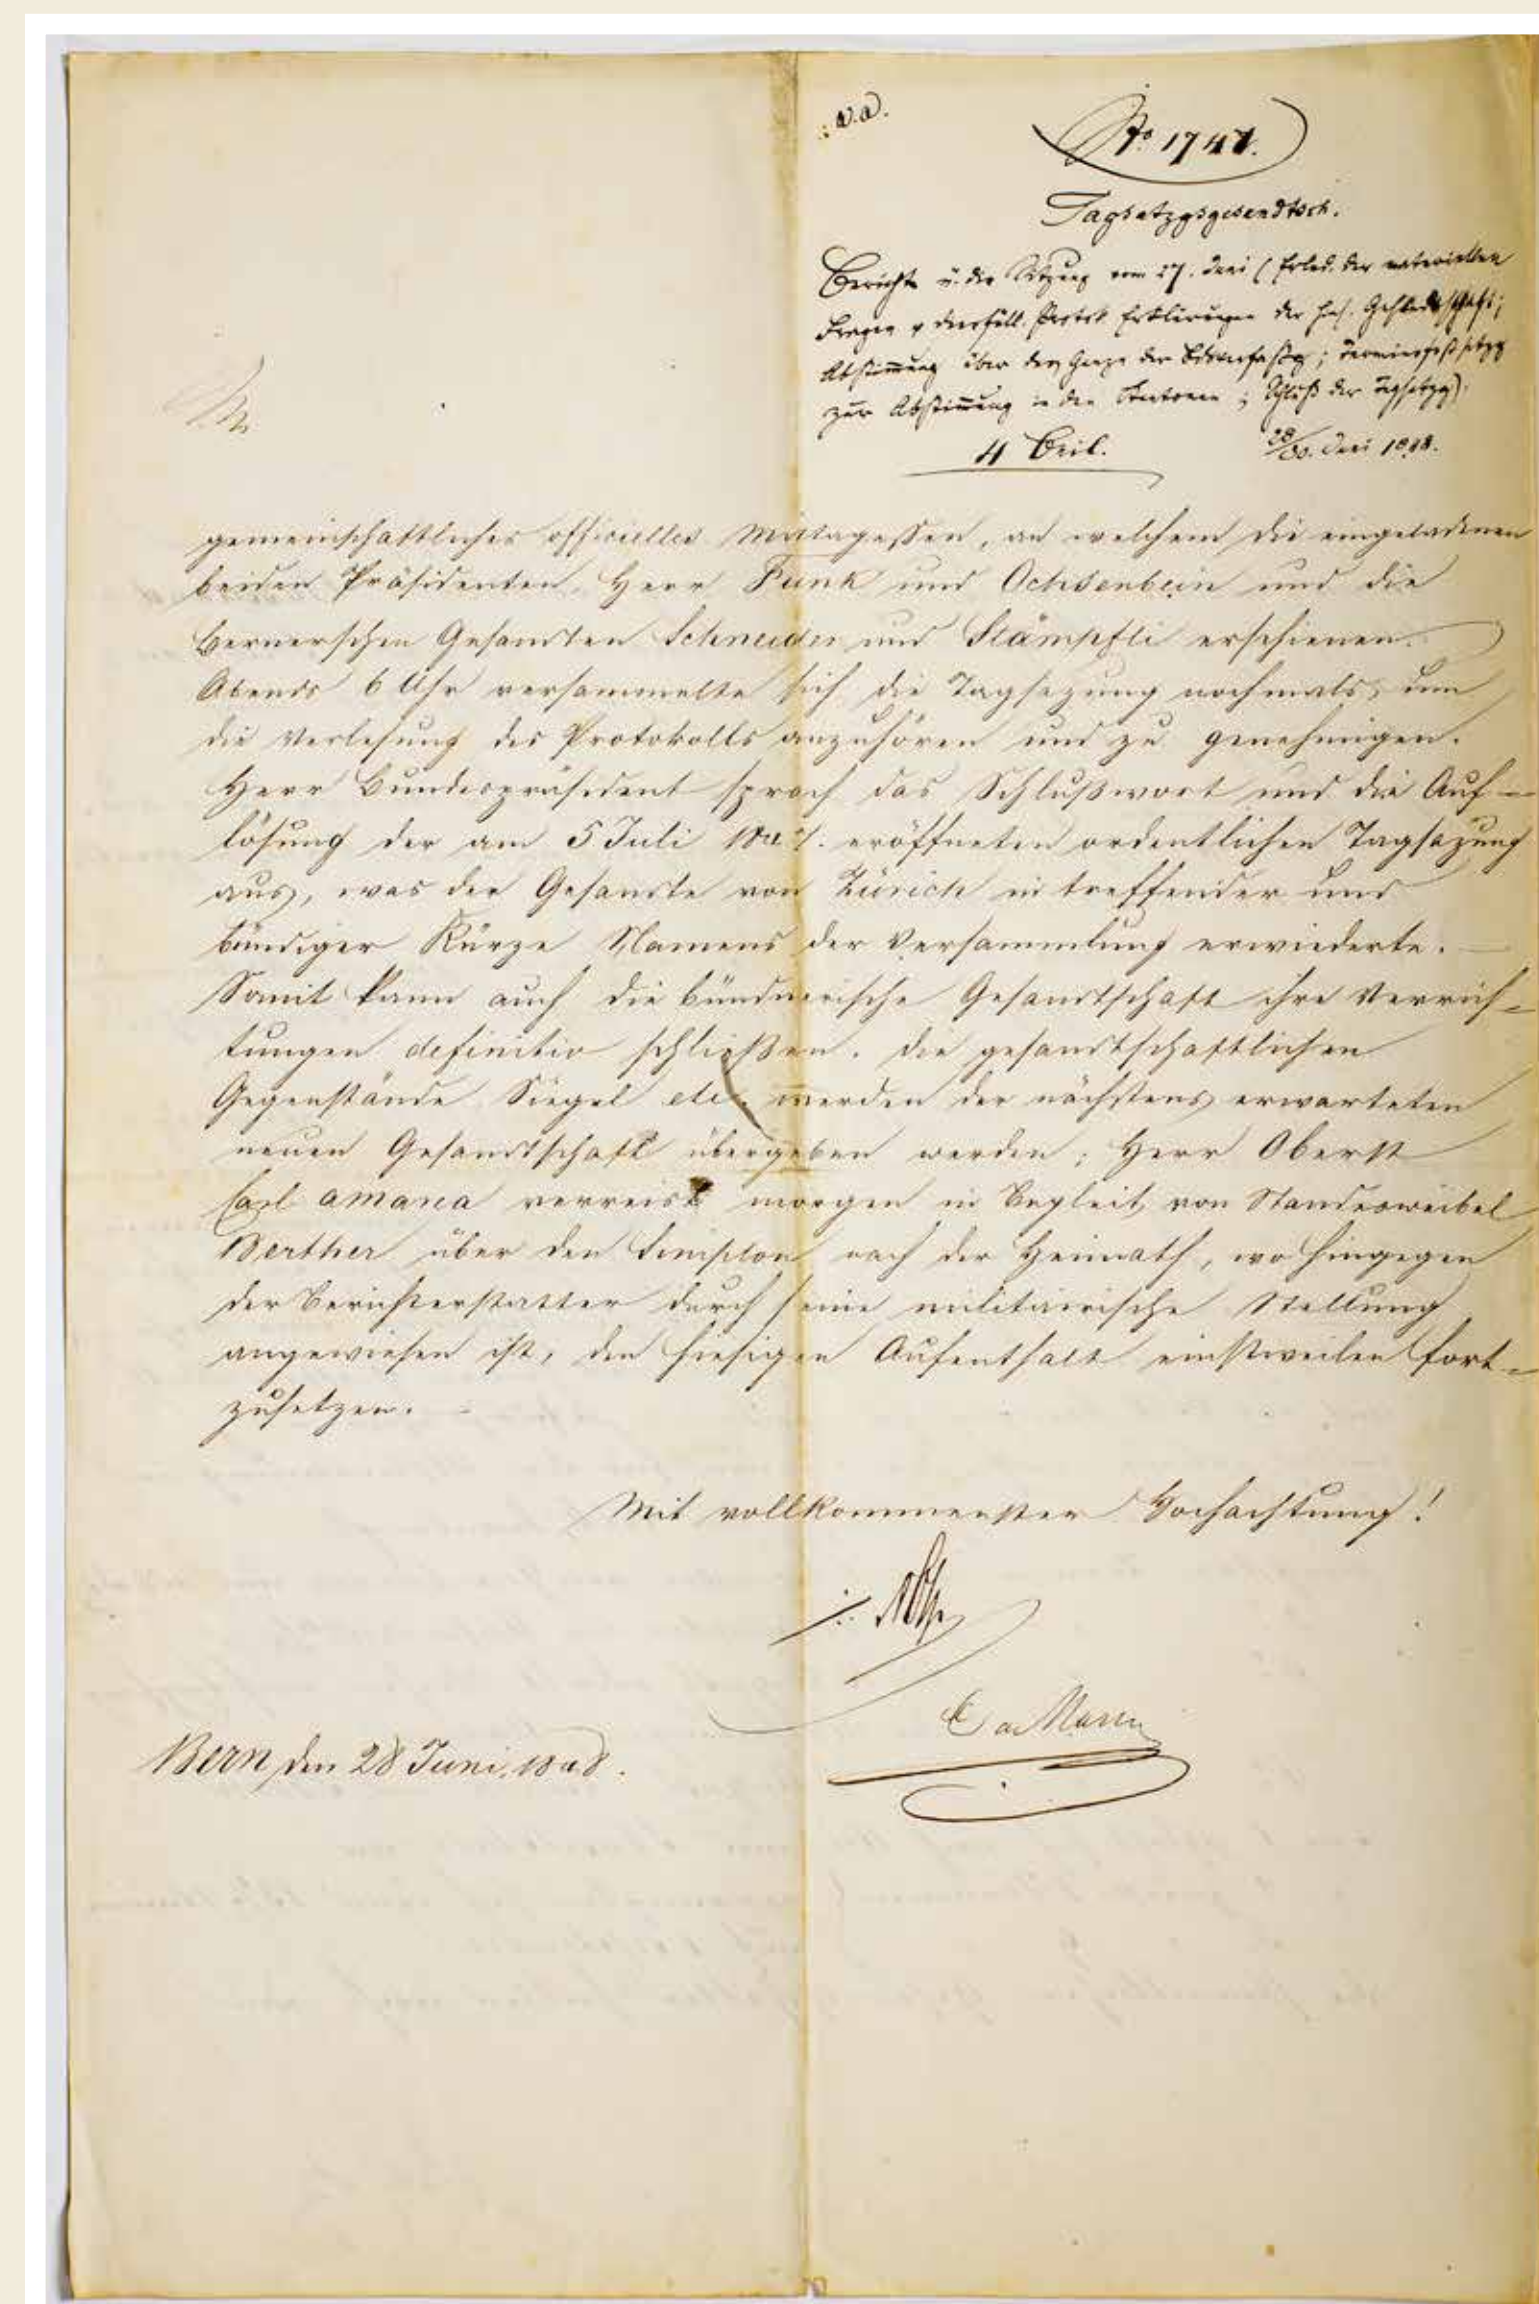 No 1747.
Tagsatzgsgesandtsch.
Bericht ü. die Sitzung vom 27. Juni (Erled. der materiellen
Fragen Protok Erklärungen der
Abstimmung über das Ganze der Bdsverfassg; Terminfestsetzg
zur Abstimmung in den Kantonen; Schluß der Tagsatzg).
4 Beil. 28/30. Juni 1848.
gemeinschaftliches officielles Mittagessen, an welchem die eingeladenen
beiden Präsidenten, Herr Funk und Ochsenbein und die
Bernerschen Gesandten Schneider und Stämpfli erschienen.
Abends 6 Uhr versammelte sich die Tagsazung nochmals, um
die Verlesung des Protokolls anzuhören und zu genehmigen.
Herr Bundespräsident sprach das Schlußwort und die Auf-
lösung der am 5 Juli 1847. eröffneten ordentlichen Tagsazung
aus, was der Gesandte von Zürich in treffender und
bündiger Kürze Namens der Versammlung erwiederte. —
Somit kann auch die bündnerische Gesandtschaft ihre Verrich-
tungen definitiv schließen. Die gesandtschaftlichen
Gegenstände Siegel etc. werden der nächstens erwarteten
neuen Gesandtschaft übergeben werden; Herr Oberst
Carl a Marca verreist morgen in Begleit von Standesweibel
Berther über den Simplon nach der Heimath, wo hingegen
der Berichterstatter durch seine militairische Stellung
angewiesen ist, den hiesigen Aufenthalt einstweilen fort-
zusetzen.
Mit vollkommenster Hochachtung!
C a Marca
Bern den 28 Juni. 1848.